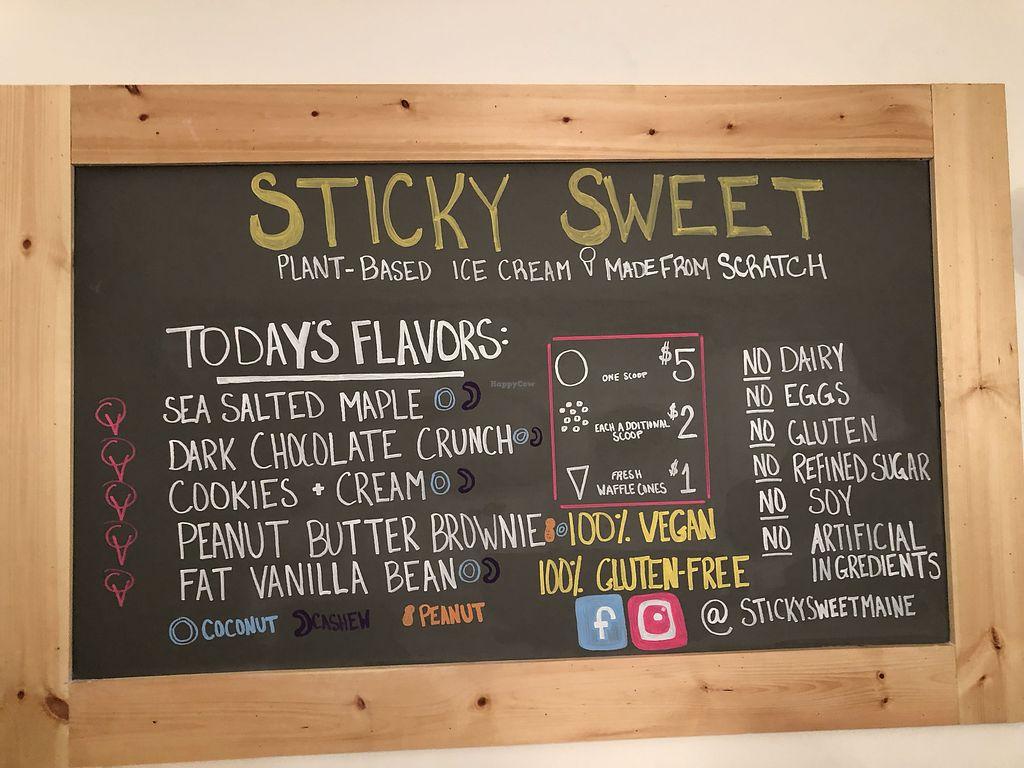 STICKY SWEET
PLANT-BASED ICE CREAM MADE FROM SCRATCH
TODAY'S FLAVORS:
SEA SALTED MAPLE
DARK CHOCOLATE CRUNCH
COOKIES + CREAM
PEANUT BUTTER BROWNIE
FAT VANILLA BEAN
COCONUT CASHEW PEANUT
HappyCow
ONE SCOOP $5
EACH ADDITIONAL SCOOP $2
FRESH
WAFFLE CONES $1
100% VEGAN
100% GLUTEN-FREE
NO DAIRY
NO EGGS
NO GLUTEN
NO REFINED SUGAR
NO SOY
NO ARTIFICIAL
INGREDIENTS
f @STICKYSWEETMAINE